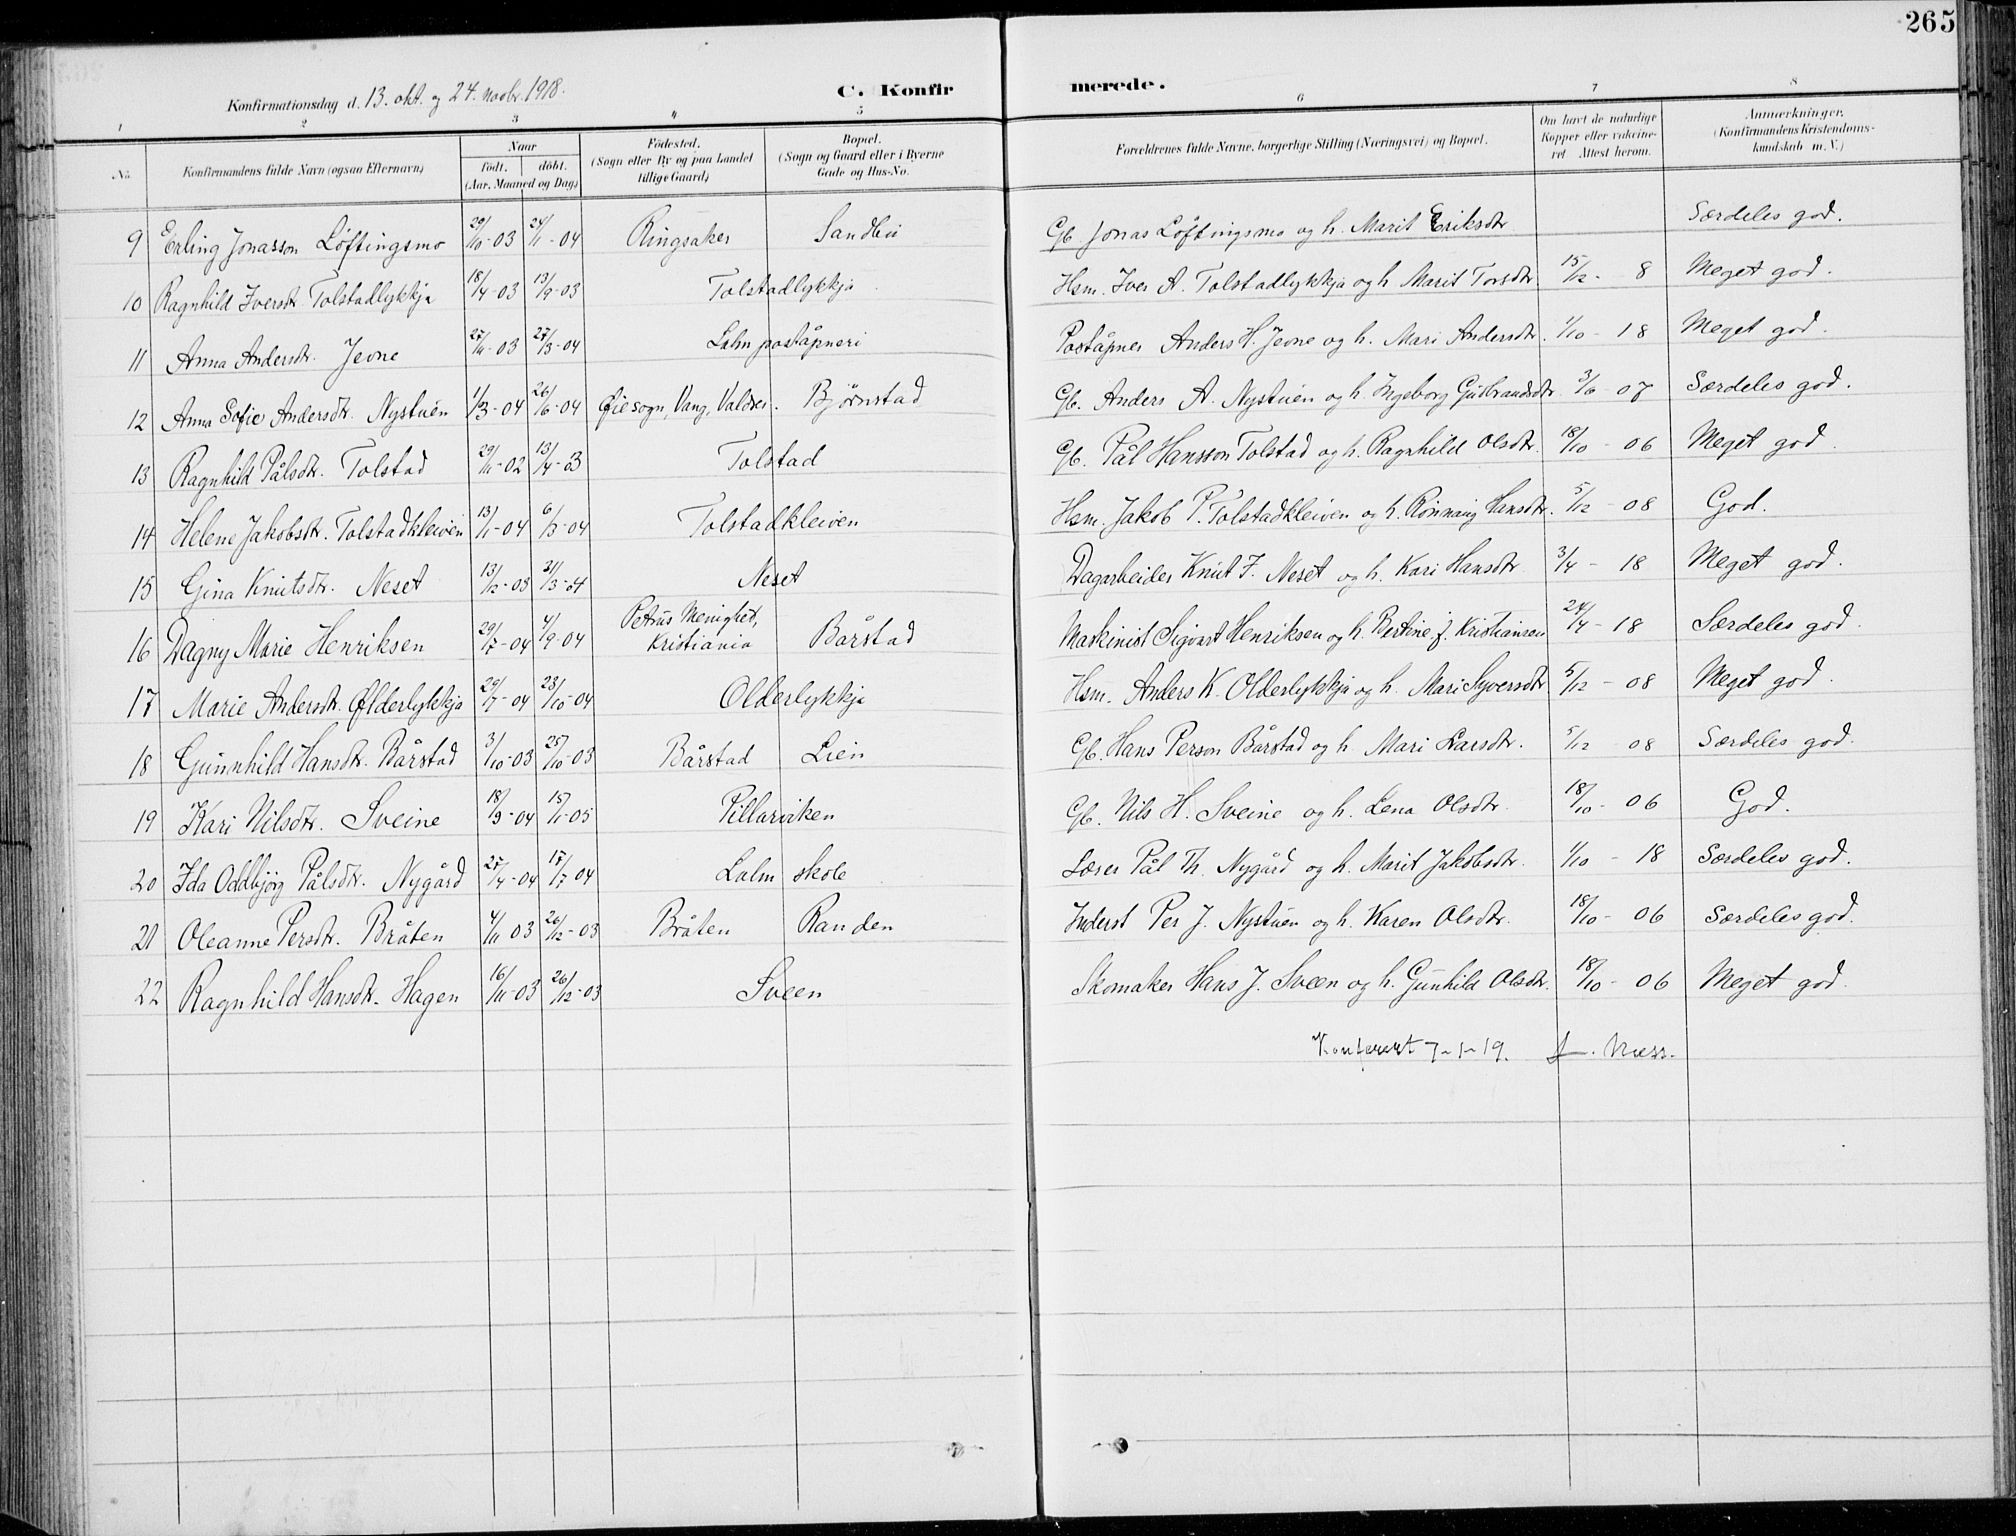 265
Konfirmationsdag d. 13. okt. og 24. novbr. 1918.
C. Konfirmerede.
1 2 3 4 5 6 7 8
No.
Konfirmandens fulde Navn (ogsaa Efternavn)
Naar
født. døbt.
(Aar, Maaned og Dag)
Födested.
(Sogn eller By og paa Landet
tillige Gaard)
Bopæl.
(Sogn og Gaard eller i Byerne
Gade og Hus-No.
Forældrenes fulde Navne, borgerlige Stilling (Næringsvei) og Bopæl.
Om havt de naturlige
Kopper eller vakcine-
ret Attest herom.
Anmærkninger.
(Konfirmandens Kristendoms-
kundskab m. V.)
9 Erling Jonasson Löftingsmo 29/10-03 24/1-04 Ringsaker Sandbu Gb. Jonas Löftingsmo og h. Marit Eriksdtr. Særdeles god.
10 Ragnhild Iversdtr Tolstadlykkja 18/4-03 13/9-03 Tolstadlykkja Hsm. Iver A. Tolstadlykkja og h Marit Torsdtr 15/12 - 8 Meget god.
11 Anna Andersdtr. Jevne 27/11-03 27/3-04 Lalm poståpneri Poståpner Anders H. Jevne og h. Mari Andersdtr. 1/10 - 18 Meget god.
12 Anna Sofie Andersdtr. Nystuen 1/3-04 26/6-04 Øie sogn, Vang, Valdres. Bjørnstad Gb. Anders A. Nystuen og h. Ingeborg Gudbrandsdtr 3/6 - 07 Særdeles god.
13 Ragnhild Pålsdtr. Tolstad 29/11-02 13/4-03 Tolstad Gb. Pål Hansson Tolstad og h. Ragnhild Olsdtr. 18/10 - 06 Meget god
14 Helene Jakobsdtr. Tolstadkleiven 13/1-04 6/3-04 Tolstadkleiven Hsm. Jakob P. Tolstadkleiven og h. Rønnaug Hansdtr. 5/12 - 08 God.
15 Gina Knutsdtr. Neset 13/12-03 21/3-04 Neset Dagarbeider Knut J. Neset og h. Kari Hansdtr 3/4 - 18 Meget god.
16 Dagny Marie Henriksen 29/7-04 4/9-04 Petrus Menighed, Kristiania Bårstad Maskinist Sigvart Henriksen og h. Bertine f. Kristiansen 24/4 - 18 Særdeles god.
17 Marie Andersdtr. Olderlykkja 29/7-04 23/10-04 Olderlykkja Hsm. Anders K. Olderlykkja og h. Mari Syversdtr 5/12 - 08 Meget god.
18 Gunnhild Hansdtr. Bårstad 3/10-03 25/10-03 Bårstad Lien Gb. Hans Person Bårstad og h. Mari Larsdtr. 5/12 - 08 Særdeles god.
19 Kari Nilsdtr. Sveine 18/9-04 15/1-05 Pillarviken Gb. Nils H. Sveine og h. Lena Olsdtr. 18/10 - 06 God.
20 Ida Oddbjörg Pålsdtr. Nygård 27/4-04 17/7-04 Lalm skole Lærer Pål Th. Nygård og h. Marit Jakobsdtr. 1/10 - 18 Særdeles god.
21 Oleanne Persdtr. Bråten 4/11 03 26/12-03 Bråten Randen Inderst Per J. Nystuen og h. Karen Olsdtr. 18/10 - 06 Særdeles god.
22 Ragnhild Hansdtr. Hagen 16/11-03 26/12-03 Sveen Skomaker Hans J. Sveen og h. Gunhild Olsdtr. 18/10 - 06 Meget god.
Konferert 7-1-19. Næss.